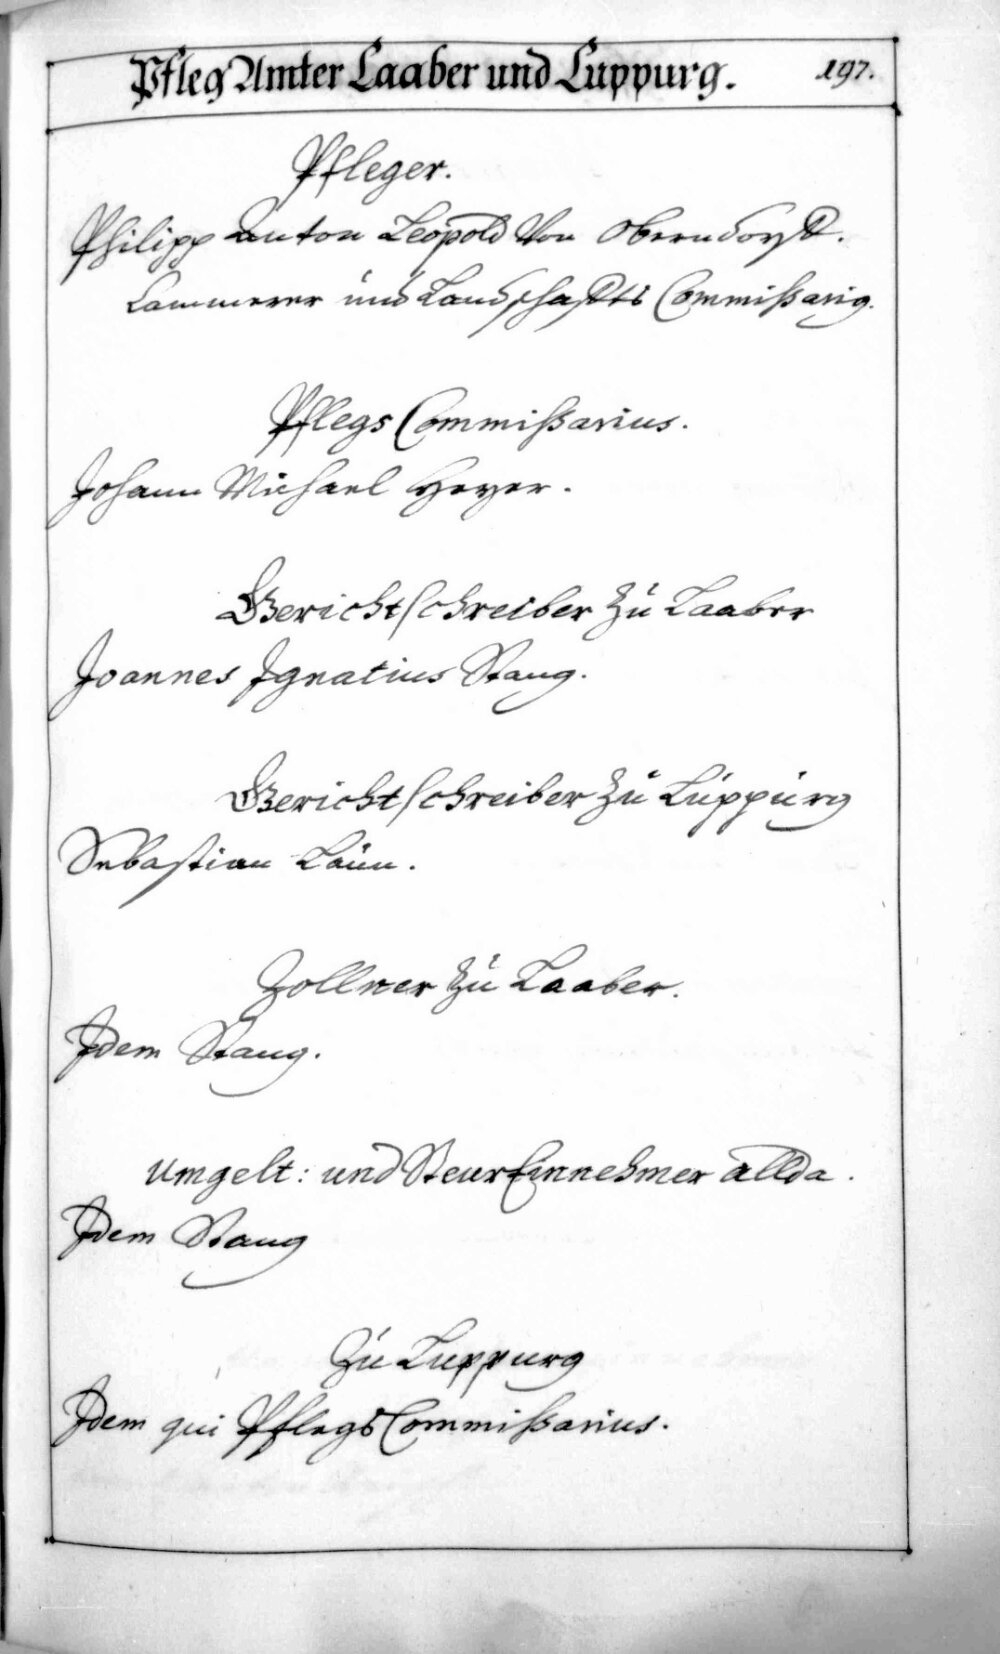 Pfleg Amter Laaber und Luppurg. 197.
Pfleger.
Philipp Anton Leopold Von Oberndorff.
Cammerer und Landschaffts Commißarig.
Pflegs Commißarius.
Johann Michael Heyer.
Gerichtschreiber Zu Laaber
Joannes Ignatius Stang.
Gerichtschreiber Zu Luppurg
Sebastian
Zollner Zu Laaber.
Idem Stang.
Umgelt: und Steur Einnehmer allda.
Idem Stang
Zu Luppurg
Idem qui Pflegs Commißarius.